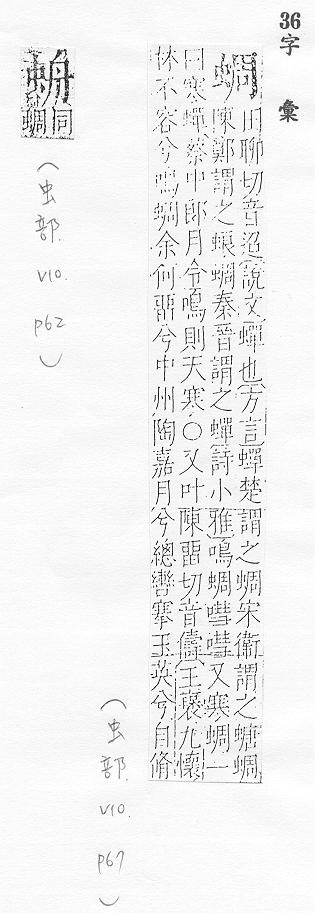 36字彙
蜩 田聊切音迢說文蟬也方言蟬楚謂之蜩宋衛謂之螗蜩
陳鄭謂之蜋蜩秦晉謂之蟬詩小雅鳴蜩嘒嘒又寒蜩一
曰寒蟬蔡中郎月令鳴則天寒○又叶陳畱切音儔王褒九懷
林不容兮鳴蜩余何畱兮中州陶嘉月兮總轡搴玉英兮自脩
(虫部.v10.p67)
同蜩
(虫部.v10.p62)